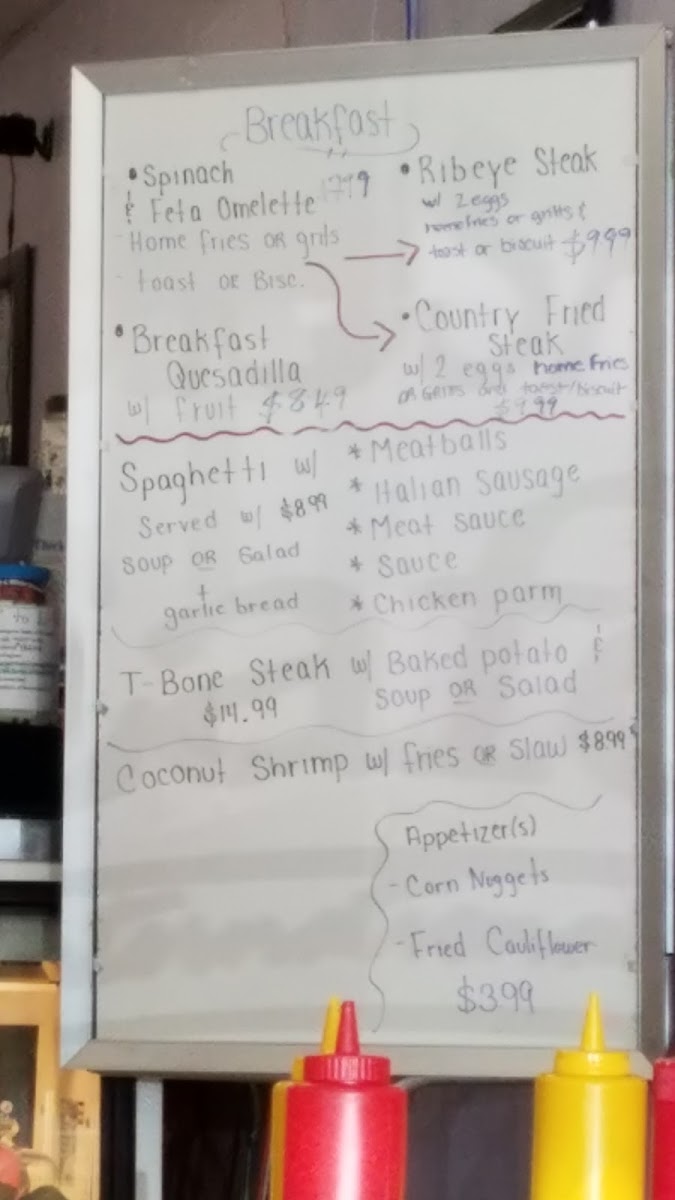 Breakfast
• Spinach
& Feta Omelette 799
- Home fries OR grits
- toast OR Bisc.
• Ribeye Steak
w/ 2 eggs
homefries or gritts &
toast or biscuit $999
• Breakfast
Quesadilla
w/ fruit $849
• Country Fried
Steak
w/ 2 eggs home fries
OR GRITS and toast/biscuit
$999
Spaghetti w/
Served w/ $899
Soup OR Salad
+
garlic bread
* Meatballs
* Italian Sausage
* Meat Sauce
* Sauce
* Chicken parm
T-Bone Steak w/ Baked potato &
$14.99 Soup OR Salad
Coconut Shrimp w/ fries OR Slaw $899
Appetizer(s)
- Corn Nuggets
- Fried Cauliflower
$399